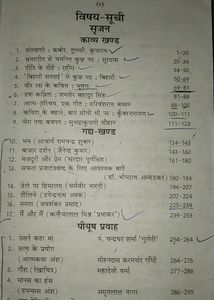 (v)
विषय-सूची
सृजन
काव्य खण्ड
1. संतवाणी : कबीर, तुलसी, कृपाराम 1-20
2. भ्रमरगीत से चयनित कुछ पद : सूरदास 20-34
3. नीति के दोहे : रहीम 34-50
4. 'बिहारी सतसई' से कुछ पद : बिहारी 50-69
5. वीर रस के कवित्त : भूषण 69-81
6. उषा कविता : शमशेर बहादुर सिंह 81-88
7. आत्म-परिचय, एक गीत : हरिवंशराय बच्चन 88-100
8. कविता के बहाने, बात सीधी थी पर : कुँवरनारायण 100-111
9. मेरा नया बचपन : सुभद्राकुमारी चौहान 111-123
गद्य-खण्ड
10. भय (आचार्य रामचन्द्र शुक्ल) 124-143
11. बाजार दर्शन (जैनेन्द्र कुमार) 143-161
12. मजदूरी और प्रेम (सरदार पूर्णसिंह) 161-180
13. सफल प्रजातंत्रवाद के लिए आवश्यक बातें
(डॉ. भीमराव अम्बेडकर) 180-194
14. ठेले पर हिमालय (धर्मवीर भारती) 194-207
15. तौलिये (उपेन्द्रनाथ अश्क) 207-225
16. ममता (जयशंकर प्रसाद) 225-239
17. मैं और मैं (कन्हैयालाल मिश्र 'प्रभाकर') 239-253
पीयूष प्रवाह
1. उसने कहा था पं. चन्द्रधर शर्मा 'गुलेरी' 254-264
2. सत्य के प्रयोग
(आत्मकथा अंश) मोहनदास करमचंद गाँधी 264-276
3. गौरा (रेखाचित्र) महादेवी वर्मा 277-286
4. मानस का हंस
(उपन्यास अंश) अमृतलाल नागर 286-295